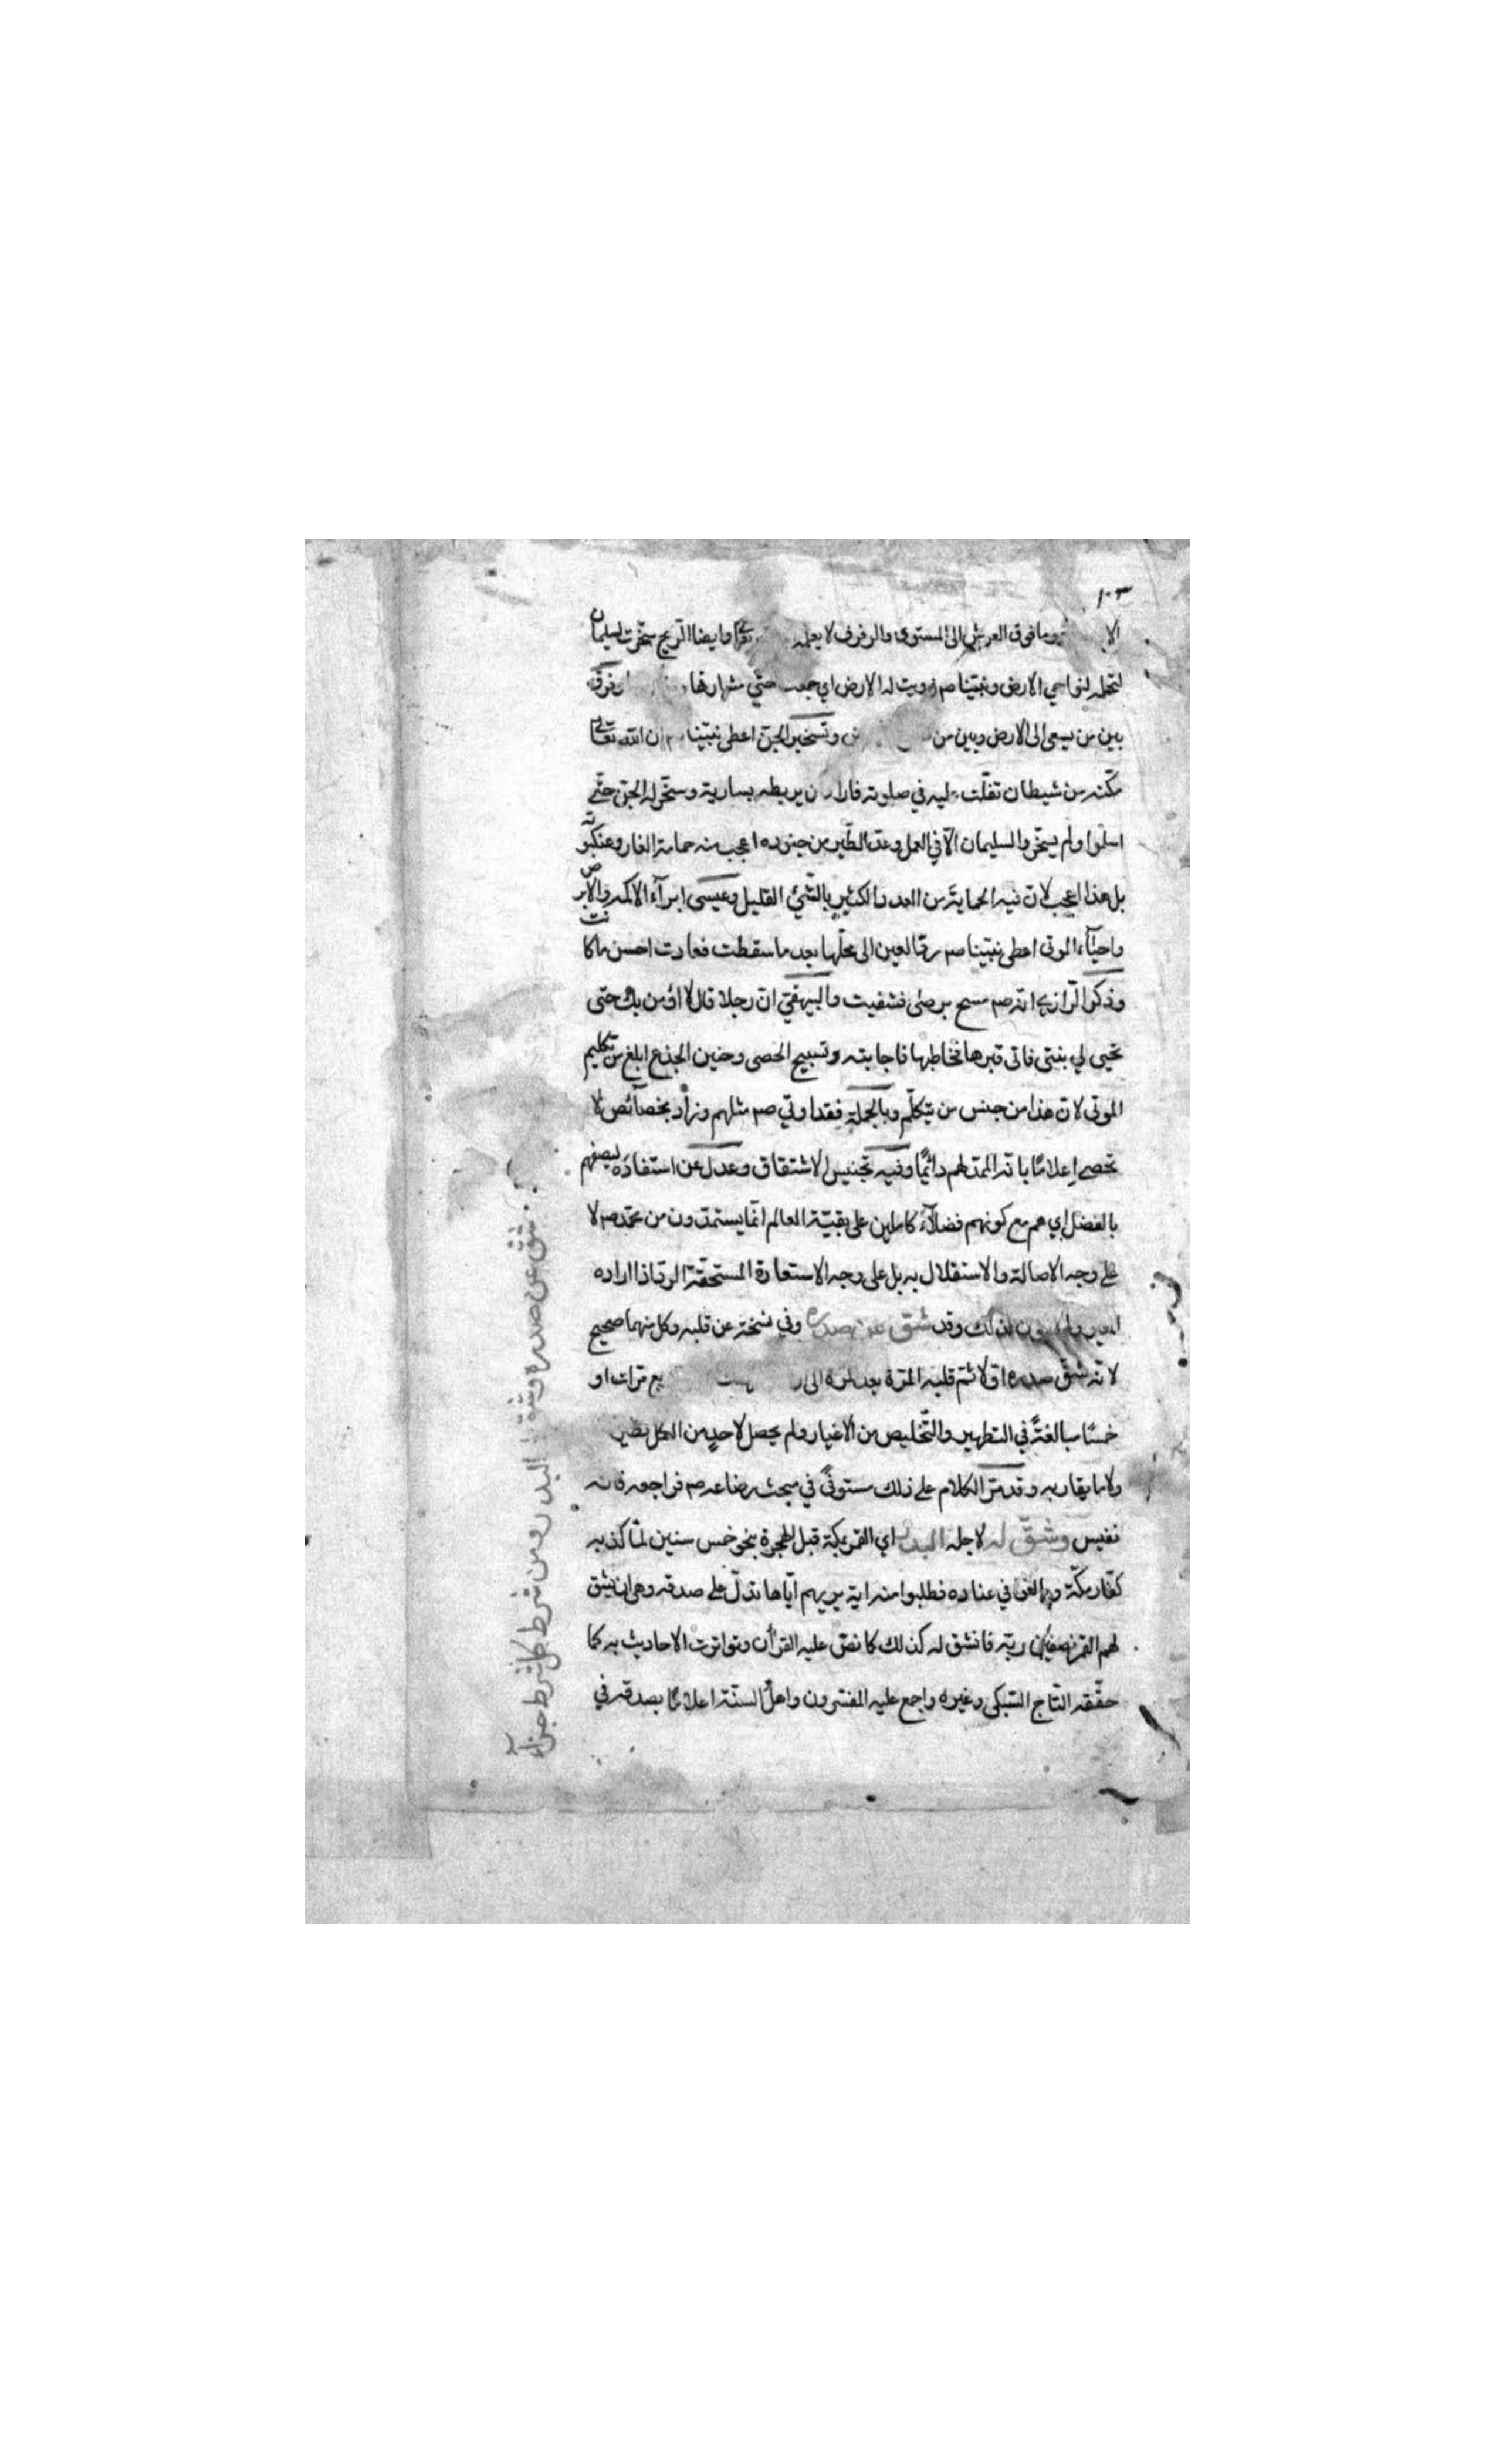 ١٠٣
وما فوق العرش الى المستوى والرفرف لا يعلمه وايضا الريح سخرت لسليمان
لتحمله لنواحي الارض ونبينا صم زويت له الارض اي جمعت حتى مشارقها وفرق
بين من يسعى الى الارض وبين من وتسخير الجن اعطى نبينا ان الله تعالى
مكّنه من شيطان تفلّت عليه في صلوته فاراد ان يربطه بسارية وسخّر له الجن حتى
اسلموا ولم يسخّروا لسليمان الّا في العمل وعدّ الطّير من جنوده اعجب منه حمامة الغار وعنكبوته
بل هذا اعجب لان فيه الحماية من العدد الكثير بالشيئ القليل وعيسى ابرآء الاكمه والابرص
واحيآء الموتى اعطى نبينا صم ردّ العين الى محلّها بعد ما سقطت فعادت احسن ما كانت
وذكر الرازي انّه صم مسح برصى فشفيت والبيهقي انّ رجلا قال لا اؤمن بك حتى
تحيى لي بنتى فاتى قبرها فخاطبها فاجابته وتسبيح الحصى وحنين الجذع ابلغ من تكليم
الموتى لان هذا من جنس من يتكلّم وبالجملة فقد اوتي صم مثلهم وزاد بخصآئص لا
تحصى إعلامًا بانّه الممدّ لهم دائمًا وفيه تجنيس الاشتقاق وعدل عن استفاده ليصفهم
بالفضل اي هم مع كونهم فضلآء كاملين على بقيّة العالم انّما يستمدّون من محمّد صم لا
على وجه الاصالة والاستقلال به بل على وجه الاستعارة المستحقّة الردّ اذا اراده
المعير لذلك وقد شقّ عن صدره وفي نسخة عن قلبه وكل منهما صحيح
لانّه شقّ صدره اوّلا ثم قلبه المرّة بعد المرّة الى مرّات او
خمسًا مبالغةً في التطهير والتّخليص من الاغيار ولم يحصل لاحدٍ من الكل نظير
ولا ما يقاربه وقد مرّ الكلام على ذلك مستوفًى في مبحث رضاعه صم فراجعه فانه
نفيس وشقّ له لاجله البدر اي القمر بمكّة قبل الهجرة بنحو خمس سنين لمّا كذبه
كفّار مكّة وبالغوا في عناده فطلبوا منه اية يريهم ايّاها تدلّ على صدقه وهى ان يشق
لهم القمر نصفين ربّه فانشق له كذلك كما نصّ عليه القرأن وتواترت الاحاديث به كما
حقّقه التّاج السّبكى وغيره واجمع عليه المفسّرون واهل السنّة اعلامًا بصدقه في
شق عن صدره وشق البدر ومن شرط كل شرط جزآء